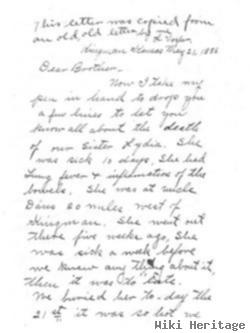 This letter was copied from
an old, old letter by L
Kingman Kansas May 21, 1886
Dear Brother,
Now I take my
pen in hand to drop you
a few lines to let you
know all about the death
of our Sister Lydia. She
was sick 10 days, She had
lung fever & inflamation of the
bowels. She was at uncle
Dans 20 miles west of
Kingman. She went out
there five weeks ago, She
was sick a week before
we knew any thing about it,
then it was to late.
We buried her to-day the
21st it was so hot we
Wiki Heritage